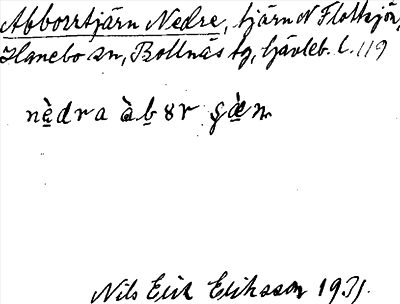 Abborrtjärn Nedre, tjärn N Flotsjön,
Hanebo sn, Bollnäs tg, Gävleb. l. 119
nèdra àbor ɕæ̀n
Nils Erik Eriksson 1931.